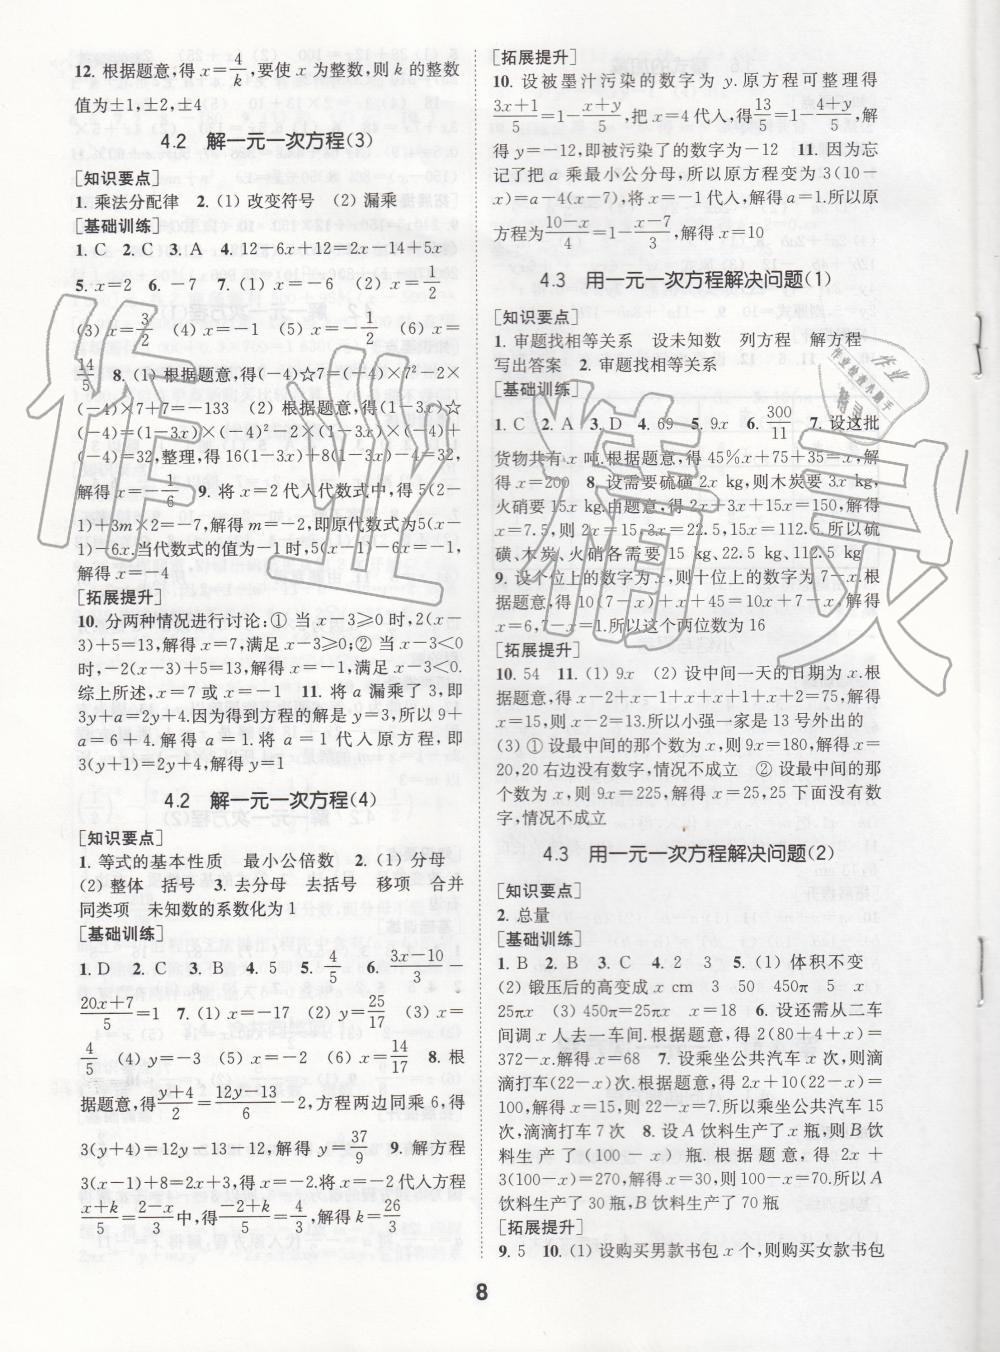 12. 根据题意,得x=4/k,要使x为整数,则k的整数
值为±1,±2,±4
4.2 解一元一次方程(3)
[知识要点]
1. 乘法分配律 2. (1) 改变符号 (2) 漏乘
[基础训练]
1. C 2. C 3. A 4. 12-6x+12=2x-14+5x
5. x=2 6. -7 7. (1) x=-6 (2) x=1/2
(3) x=3/2 (4) x=-1 (5) x=-1/2 (6) x=
14/5 8. (1) 根据题意,得(-4)☆7=(-4)×7²-2×
(-4)×7+7=-133 (2) 根据题意,得(1-3x)☆
(-4)=(1-3x)×(-4)²-2×(1-3x)×(-4)+
(-4)=32,整理,得16(1-3x)+8(1-3x)-4=32,
解得x=-1/6 9. 将x=2代入代数式中,得5(2-
1)+3m×2=-7,解得m=-2,即原代数式为5(x-
1)-6x.当代数式的值为-1时,5(x-1)-6x=-1,
解得x=-4
[拓展提升]
10. 分两种情况进行讨论:① 当x-3≥0时,2(x-
3)+5=13,解得x=7,满足x-3≥0;② 当x-3<0
时,-2(x-3)+5=13,解得x=-1,满足x-3<0.
综上所述,x=7或x=-1 11. 将a漏乘了3,即
3y+a=2y+4.因为得到方程的解是y=3,所以9+
a=6+4.解得a=1.将a=1代入原方程,即
3(y+1)=2y+4,解得y=1
4.2 解一元一次方程(4)
[知识要点]
1. 等式的基本性质 最小公倍数 2. (1) 分母
(2) 整体 括号 3. 去分母 去括号 移项 合并
同类项 未知数的系数化为1
[基础训练]
1. D 2. C 3. B 4. 5 5. 4/5 6. (3x-10)/3-
(20x+7)/5=1 7. (1) x=-17 (2) y=25/17 (3) x=
4/5 (4) y=-3 (5) x=-2 (6) x=14/17 8. 根
据题意,得(y+4)/2=(12y-13)/6-2,方程两边同乘6,得
3(y+4)=12y-13-12,解得y=37/9 9. 解方程
3(x-1)+8=2x+3,得x=-2.将x=-2代入方程
(x+k)/5=(2-x)/3中,得(-2+k)/5=4/3,解得k=26/3
[拓展提升]
10. 设被墨汁污染的数字为y.原方程可整理得
(3x+1)/5=1-(x+y)/5,把x=4代入,得13/5=1-(4+y)/5,解
得y=-12,即被污染了的数字为-12 11. 因为忘
记了把a乘最小公分母,所以原方程变为3(10-
x)=a-4(x-7),将x=-1代入,解得a=1.所以原
方程为(10-x)/4=1-(x-7)/3,解得x=10
4.3 用一元一次方程解决问题(1)
[知识要点]
1. 审题找相等关系 设未知数 列方程 解方程
写出答案 2. 审题找相等关系
[基础训练]
1. C 2. A 3. D 4. 69 5. 9x 6. 300/11 7. 设这批
货物共有x吨.根据题意,得45%x+75+35=x,解
得x=200 8. 设需要硫磺2x kg,则木炭要3x kg,
火硝要15x kg.由题意,得2x+3x+15x=150,解得
x=7.5,则2x=15,3x=22.5,15x=112.5.所以硫
磺、木炭、火硝各需要15 kg、22.5 kg、112.5 kg
9. 设个位上的数字为x,则十位上的数字为7-x.根
据题意,得10(7-x)+x+45=10x+7-x,解得
x=6,7-x=1.所以这个两位数为16
[拓展提升]
10. 54 11. (1) 9x (2) 设中间一天的日期为x.根
据题意,得x-2+x-1+x+x+1+x+2=75,解得
x=15,则x-2=13.所以小强一家是13号外出的
(3) ① 设最中间的那个数为x,则9x=180,解得x=
20,20右边没有数字,情况不成立 ② 设最中间的那
个数为x,则9x=225,解得x=25,25下面没有数
字,情况不成立
4.3 用一元一次方程解决问题(2)
[知识要点]
2. 总量
[基础训练]
1. B 2. B 3. C 4. 2 3 5. (1) 体积不变
(2) 锻压后的高变成x cm 3 50 450π 5 x
25πx (3) 450π=25πx x=18 6. 设还需从二车
间调x人去一车间.根据题意,得2(80+4+x)=
372-x.解得x=68 7. 设乘坐公共汽车x次,则滴
滴打车(22-x)次.根据题意,得2x+10(22-x)=
100,解得x=15,则22-x=7.所以乘坐公共汽车15
次,滴滴打车7次 8. 设A饮料生产了x瓶,则B饮
料生产了(100-x)瓶.根据题意,得2x+
3(100-x)=270,解得x=30,则100-x=70.所以A
饮料生产了30瓶,B饮料生产了70瓶
[拓展提升]
9. 5 10. (1) 设购买男款书包x个,则购买女款书包
8
作业精灵
作业
作业检查小助手
精灵